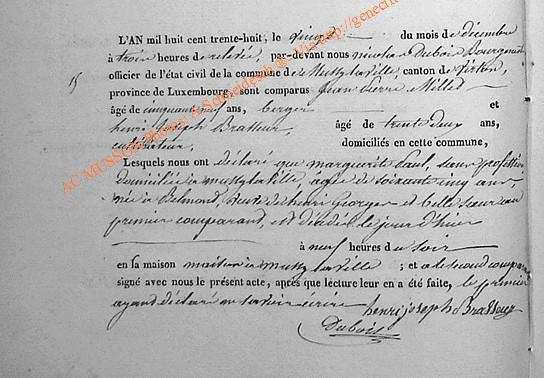 L'AN mil huit cent trente-huit, le quinze du mois de décembre
à trois heures de relevée, par-devant nous nicolas Dubois Bourgmestre
officier de l'état civil de la commune de Mussy la ville, canton de Virton,
province de Luxembourg, sont comparus jean pierre Milled
15
âgé de cinquante neuf ans, berger et
henri Joseph Brasseur, âgé de trente deux ans,
cultivateur, domiciliés en cette commune,
Lesquels nous ont déclaré que marguerite Paul, sans profession
domiciliée à mussy la ville, âgée de soixante cinq ans,
née à Belmont, veuve de henri Georges et belle soeur au
premier comparant, est décédée le jour d'hier
à neuf heures du soir
en sa maison à mussy la ville ; et a le second comparant
signé avec nous le présent acte, après que lecture leur en a été faite, le premier
ayant déclaré ne savoir écrire henri joseph Brasseur
Dubois
AC MUSSON Photos A. Schneidesch © - Via http://genecher